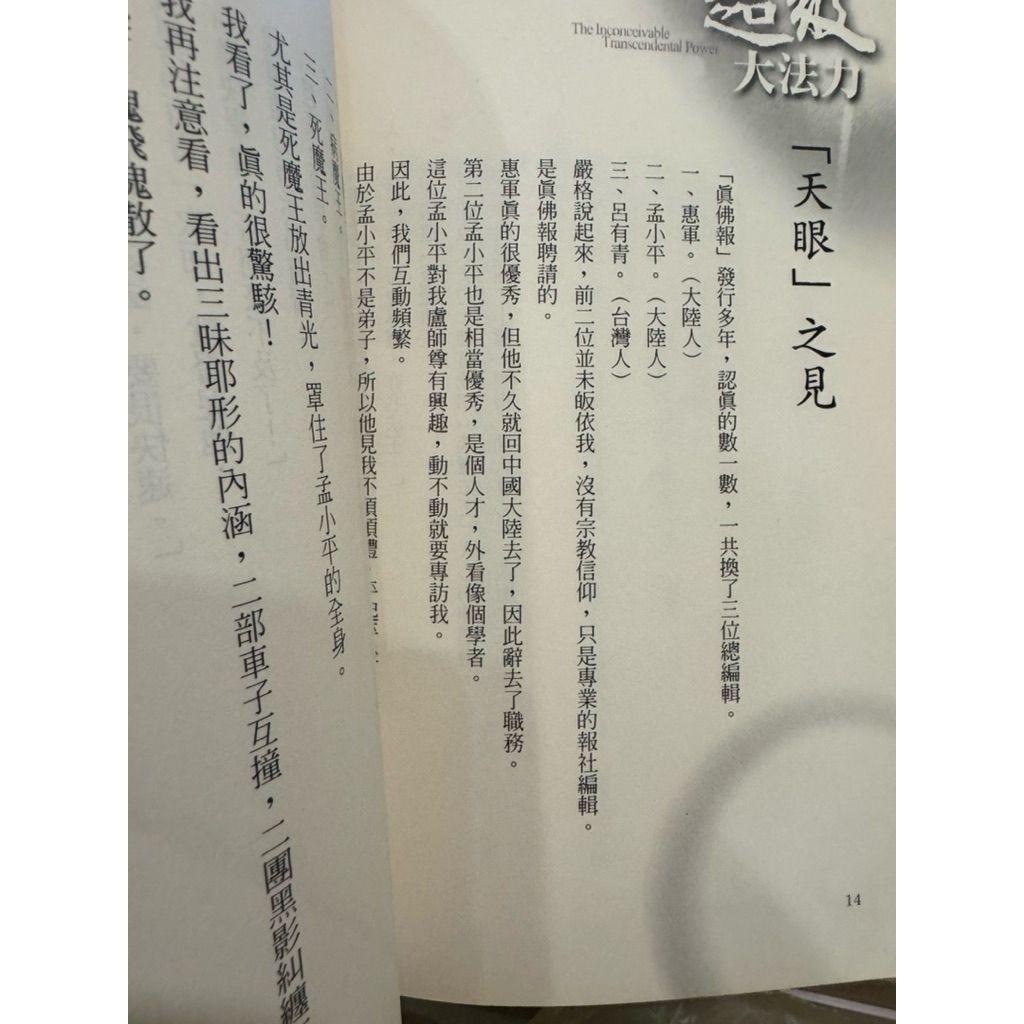 The Inconceivable
Transcendental Power
大法力
「天眼」之見
「眞佛報」發行多年，認眞的數一數，一共換了三位總編輯。
一、惠軍。（大陸人）
二、孟小平。（大陸人）
三、呂有青。（台灣人）
嚴格說起來，前二位並未皈依我，沒有宗教信仰，只是專業的報社編輯。
是眞佛報聘請的。
惠軍眞的很優秀，但他不久就回中國大陸去了，因此辭去了職務。
第二位孟小平也是相當優秀，是個人才，外看像個學者。
這位孟小平對我盧師尊有興趣，動不動就要專訪我。
因此，我們互動頻繁。
由於孟小平不是弟子，所以他見我不須頂禮
14
三、死魔王。
尤其是死魔王放出青光，罩住了孟小平的全身。
我看了，眞的很驚駭！
我再注意看，看出三昧耶形的內涵，二部車子互撞，二團黑影糾纏
魂飛魄散了。